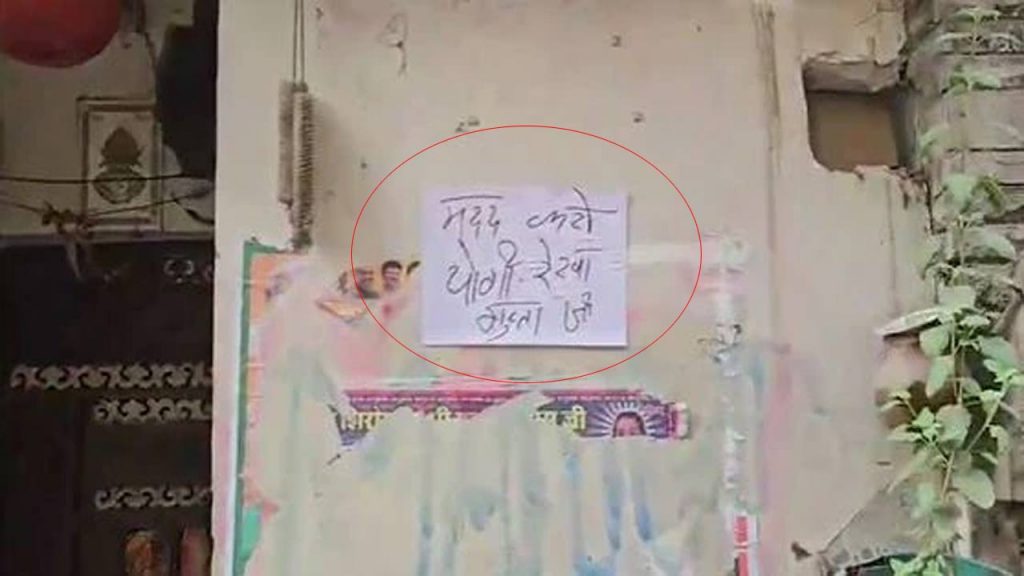 मदद करो
योगी रेखा
गुप्ता जी